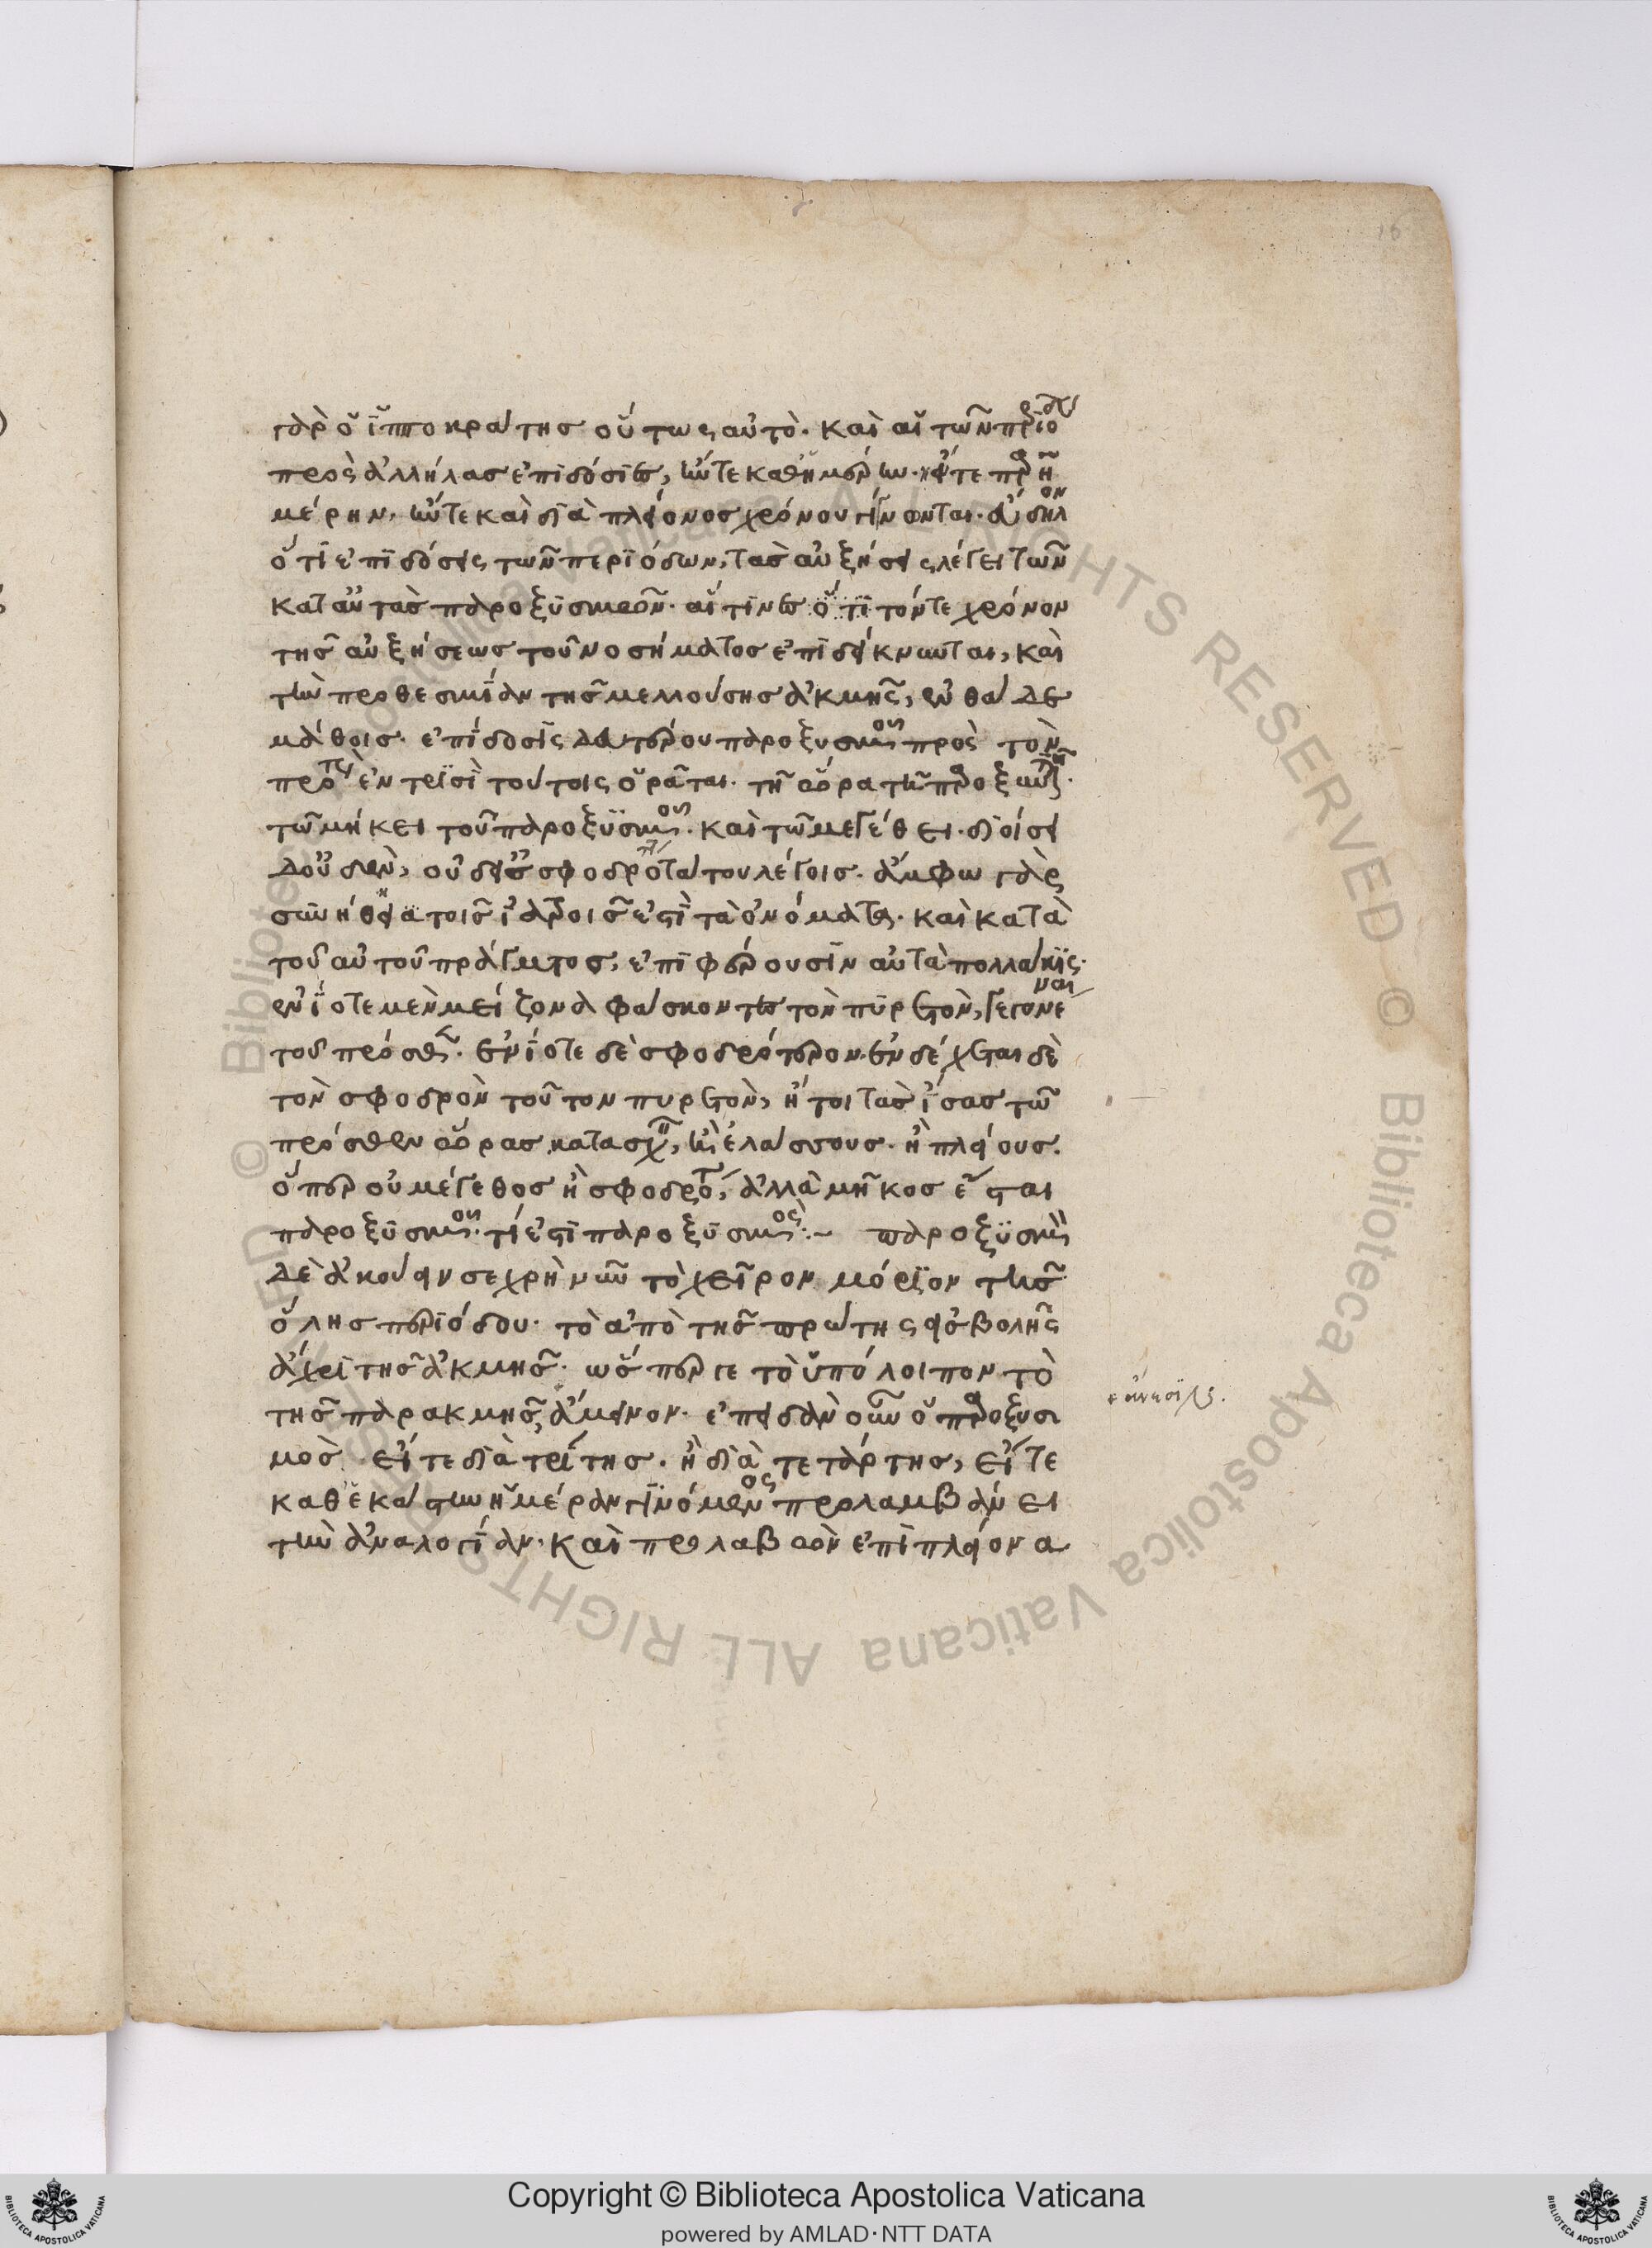 16
γὰρ ὁ ἱπποκράτης οὕτως αὐτὸ. καὶ αἱ τῶν περιόδων
πρὸς ἀλλήλας ἐπιδόσιες, ἤν τε καθημέρην. ἤν τε παρ' ἡ
μέρην. ἤν τε καὶ διὰ πλείονος χρόνου γίνονται. δῆλον
ὅτι ἐπιδόσεις τῶν περιόδων, τὰς αὐξήσεις λέγει τῶν
κατ αὐτὰς παροξυσμῶν. αἵτινες ὅτι τόν τε χρόνον
τῆς αὐξήσεως τοῦ νοσήματος ἐπιδείκνυνται, καὶ
τὴν προθεσμίαν τῆς μελλούσης ἀκμῆς, ἐνθάδε
μάθοις. ἐπίδοσις δευτέρου παροξυσμοῦ πρὸς τὸν
πρότερον ἐν τρισὶ τούτοις ὁρᾶται. τῆ ὥρα τῆς παροξύνσεως.
τῶ μήκει τοῦ παροξυσμοῦ. καὶ τῶ μεγέθει. διοίσει
δ' οὐδὲν, οὐδ' εἰ σφοδρότατον λέγοις. ἄμφω γὰρ
συνήθεα τοῖς ἰατροῖς ἐστὶ τὰ ὀνόματα. καὶ κατὰ
τοῦ αὐτοῦ πράγματος, ἐπιφέρουσιν αὐτὰ πολλάκις.
ἐνίοτε μὲν μείζονα φάσκοντες τὸν πυρετὸν, γεγονέναι
τοῦ πρόσθεν. ἐνίοτε δὲ σφοδρότερον. ἐνδέχεται δὲ
τὸν σφοδρὸν τοῦτον πυρετὸν, ἤτοι τὰς ἴσας τῶ
πρόσθεν ὥρας κατασχεῖν, ἢ ἐλάσσους. ἢ πλείους.
ὅπερ οὐ μέγεθος ἢ σφοδρότης, ἀλλὰ μῆκος ἔσται
παροξυσμοῦ. τί ἐστι παροξυσμός:~ παροξυσμὸν
δὲ ἀκούειν σε χρὴ νῦν τὸ χεῖρον μόριον τῆς
ὅλης περιόδου. τὸ ἀπὸ τῆς πρώτης εἰσβολῆς
ἄχρι τῆς ἀκμῆς. ὥσπερ γε τὸ ὑπόλοιπον τὸ
τῆς παρακμῆς, ἄμεινον. ἐπειδὰν οὖν ὁ παροξυσ
μὸς εἴτε διὰ τρίτης. ἢ διὰ τετάρτης, εἴτε
καθ' ἑκάστην ἡμέραν γινόμενος προλαμβάνει
τὴν ἀναλογίαν. καὶ προλαβὼν ἐπὶ πλείονα
Copyright © Biblioteca Apostolica Vaticana
powered by AMLAD·NTT DATA